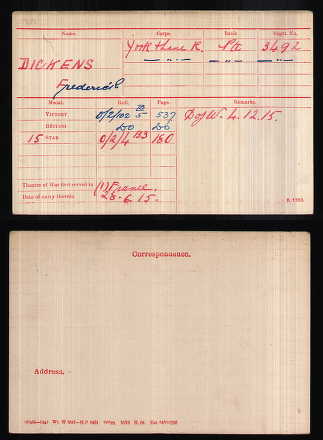 Name. Corps. Rank. Regtl. No.
DICKENS York & Lanc R. Pte 3492
— " — — " — — " —
Frederick
Medal. Roll. Page. Remarks.
VICTORY 0/2/102 B5 537 D of W. 4.12.15.
BRITISH DO DO
15 STAR 0/2/4 B3 180
Theatre of War first served in (1) France.
Date of entry therein 28.6.15.
K. 1380.
Correspondence.
Address.